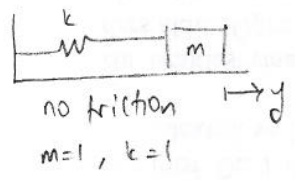 k
m
y
no friction
m=1, k=1